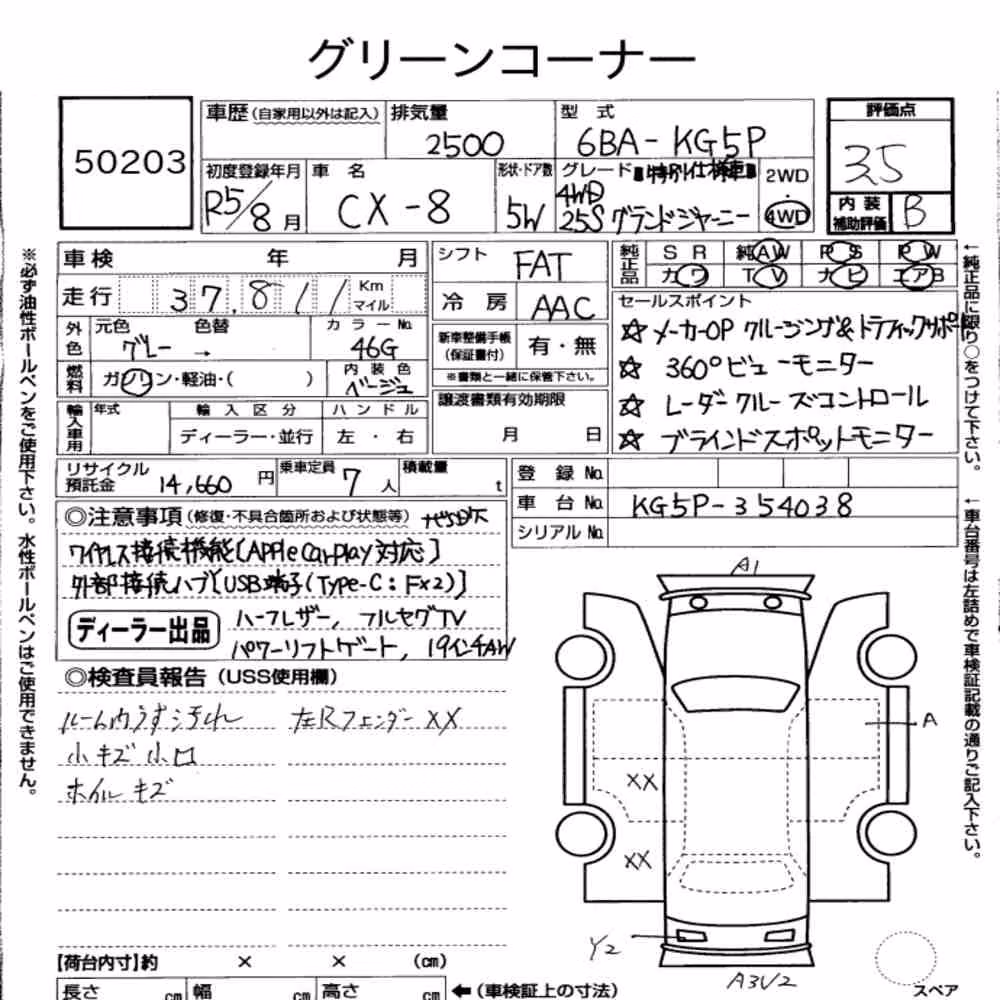 グリーンコーナー
50203
車歴(自家用以外は記入)
排気量
2500
型式
6BA-KG5P
評価点
3.5
初度登録年月
R5/8月
車名
CX-8
形状・ドア数
5W
グレード 特別仕様車
4WD
25S グランドジャーニー
2WD
4WD
内装
補助評価
B
車検 年 月
走行 37,811 Km
マイル
外色
元色 色替
グレー →
カラーNo.
46G
燃料
ガソリン・軽油・( )
内装色
ベージュ
輸入車用
年式
輸入区分
ディーラー・並行
ハンドル
左・右
シフト
FAT
冷房
AAC
新車整備手帳
(保証書付)
有・無
※書類と一緒に保管下さい。
譲渡書類有効期限
月 日
純正品
SR 純AW PS PW
カワ TV ナビ エアB
セールスポイント
☆ メーカーOP クルージング&トラフィックサポート
☆ 360°ビューモニター
☆ レーダークルーズコントロール
☆ ブラインドスポットモニター
リサイクル
預託金
14,660円
乗車定員
7人
積載量
t
登録No.
車台No. KG5P-354038
シリアルNo.
◎注意事項(修復・不具合箇所および状態等) ナビSD欠
ワイヤレス接続機能[Apple Carplay対応]
外部接続ハブ[USB端子(Type-C:F×2)]
ディーラー出品
ハーフレザー, フルセグTV
パワーリフトゲート, 19インチAW
◎検査員報告(USS使用欄)
ルーム内うす汚れ
小キズ小凹
ホイルキズ
左Rフェンダー XX
A1
A
XX
XX
Y2
A3U2
スペア
【荷台内寸】約 × × (cm)
長さ cm 幅 cm 高さ cm ←(車検証上の寸法)
※必ず油性ボールペンをご使用下さい。水性ボールペンはご使用できません。
←純正品に限り○をつけて下さい。
←車台番号は左詰めで車検証記載の通りご記入下さい。